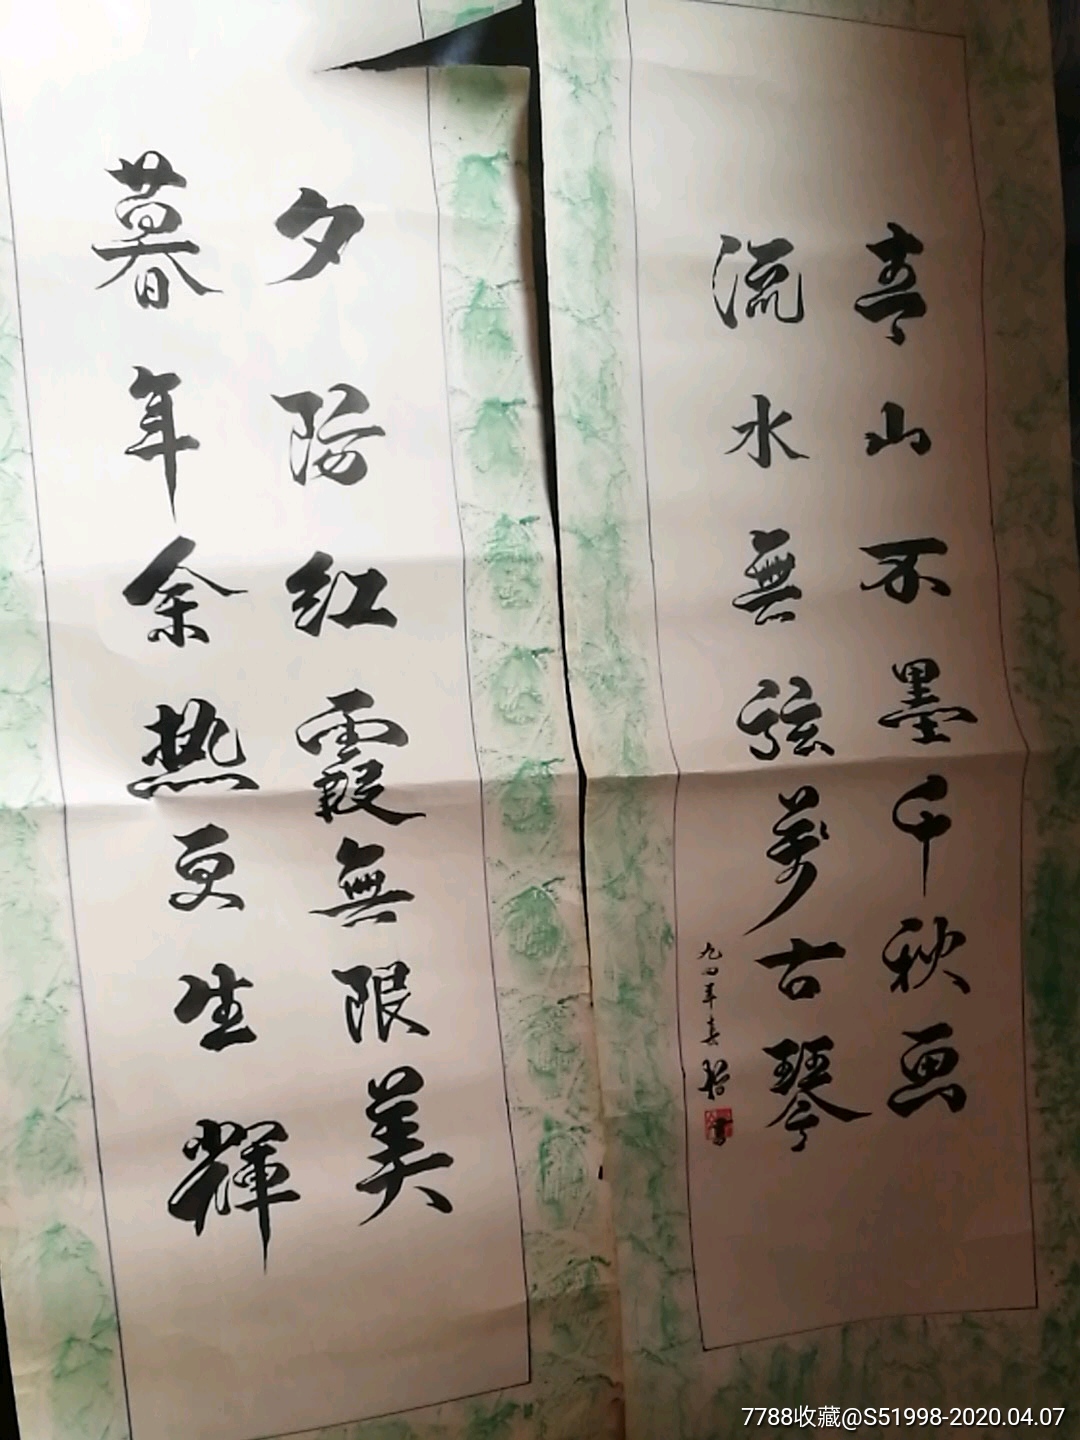 青山不墨千秋画
流水無弦萬古琴
九四年春
書
夕陽红霞無限美
暮年余热更生輝
7788收藏@S51998-2020.04.07